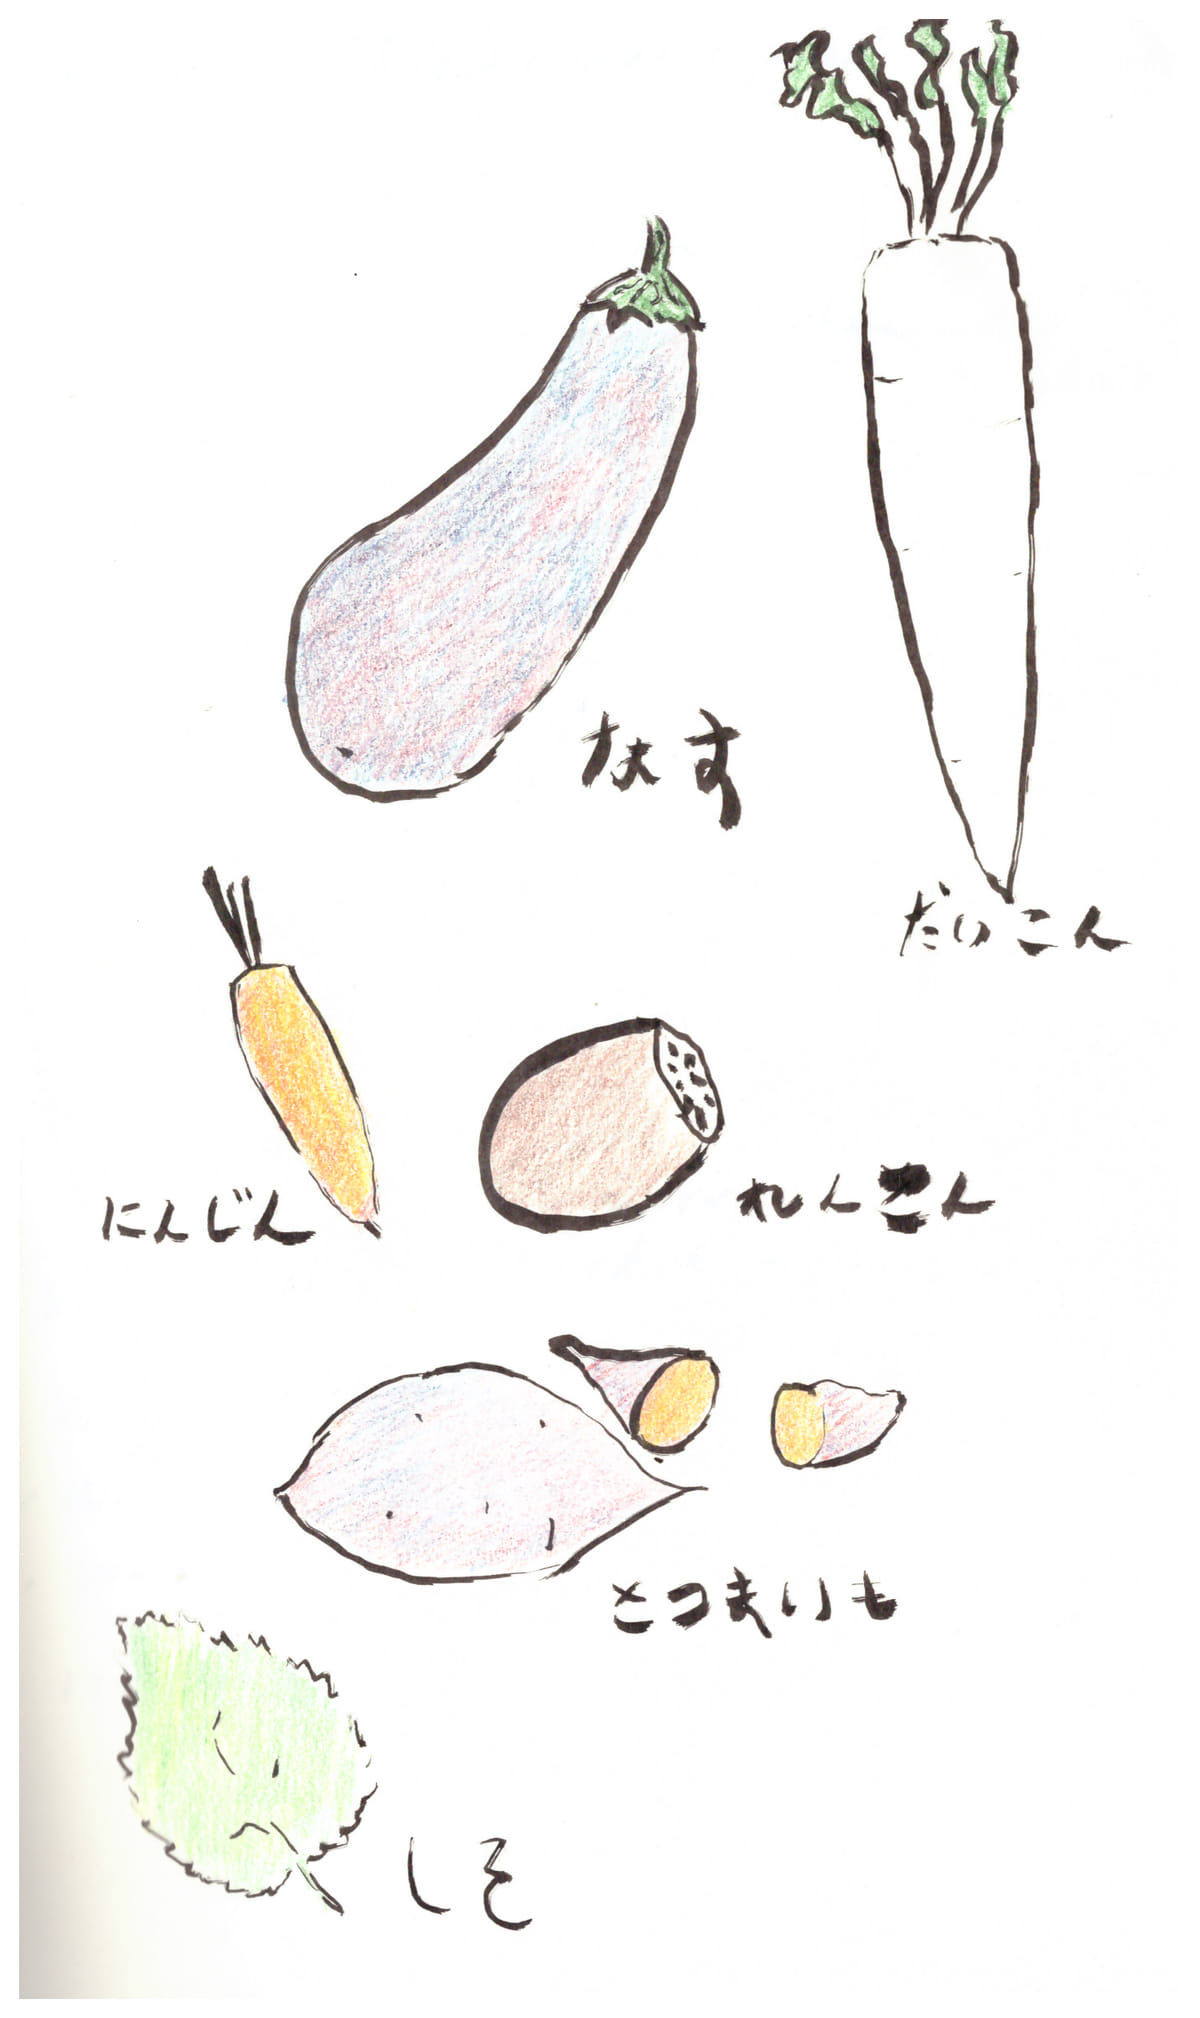 なす
だいこん
にんじん
れんこん
さつまいも
しそ